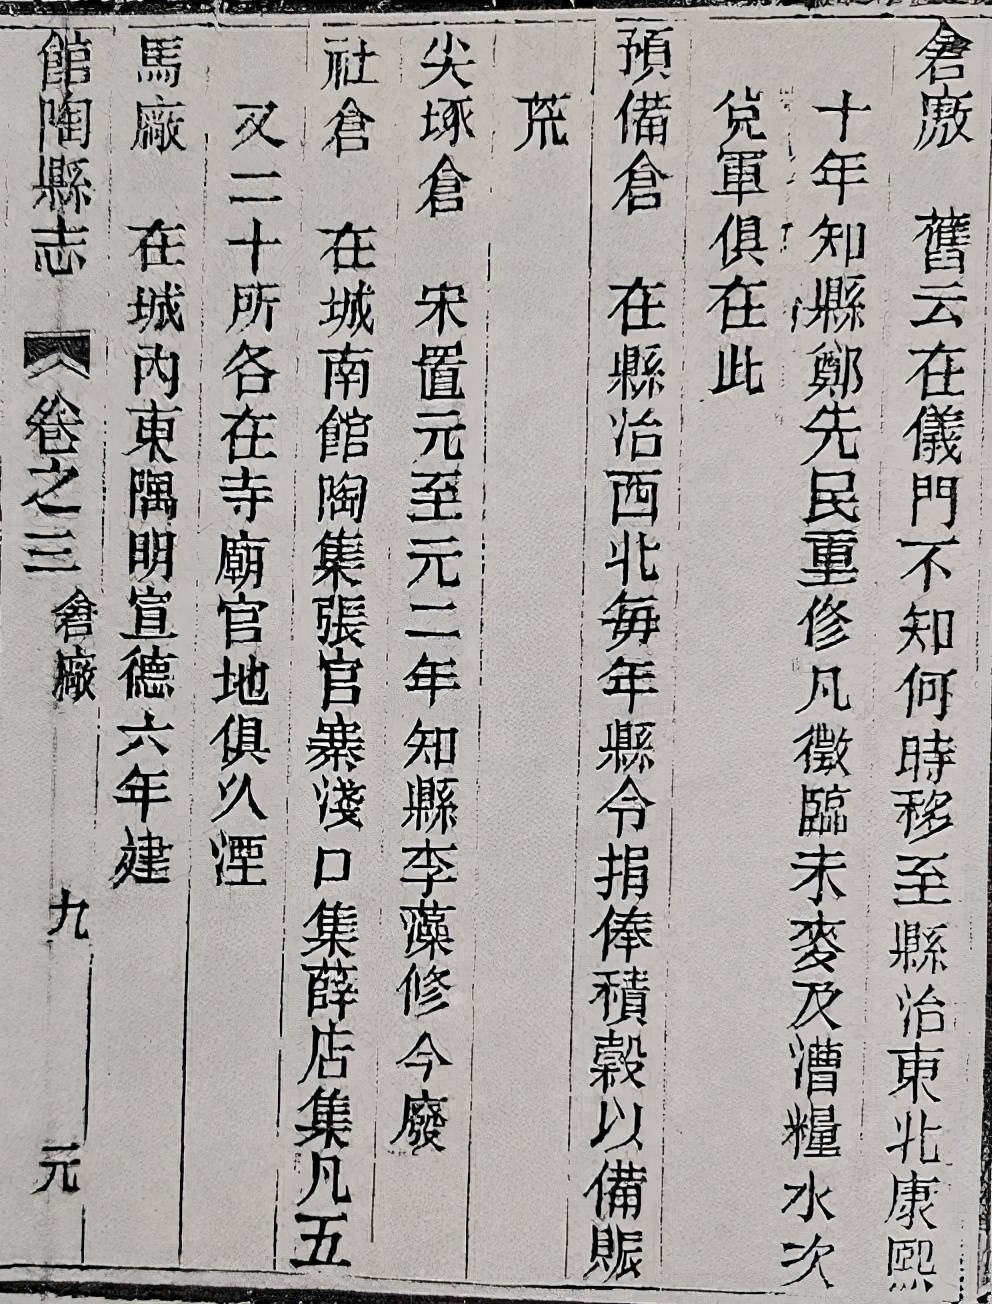 倉廒　舊云在儀門不知何時移至縣治東北康熙
十年知縣鄭先民重修凡徵臨未麥及漕糧水次
兌軍俱在此
預備倉　在縣治西北每年縣令捐俸積穀以備賑
荒
尖塚倉　宋置元至元二年知縣李藻修今廢
社倉　在城南館陶集張官寨淺口集薛店集凡五
又二十所各在寺廟官地俱久湮
馬廠　在城內東隅明宣德六年建
館陶縣志　卷之三　倉廠　九　元